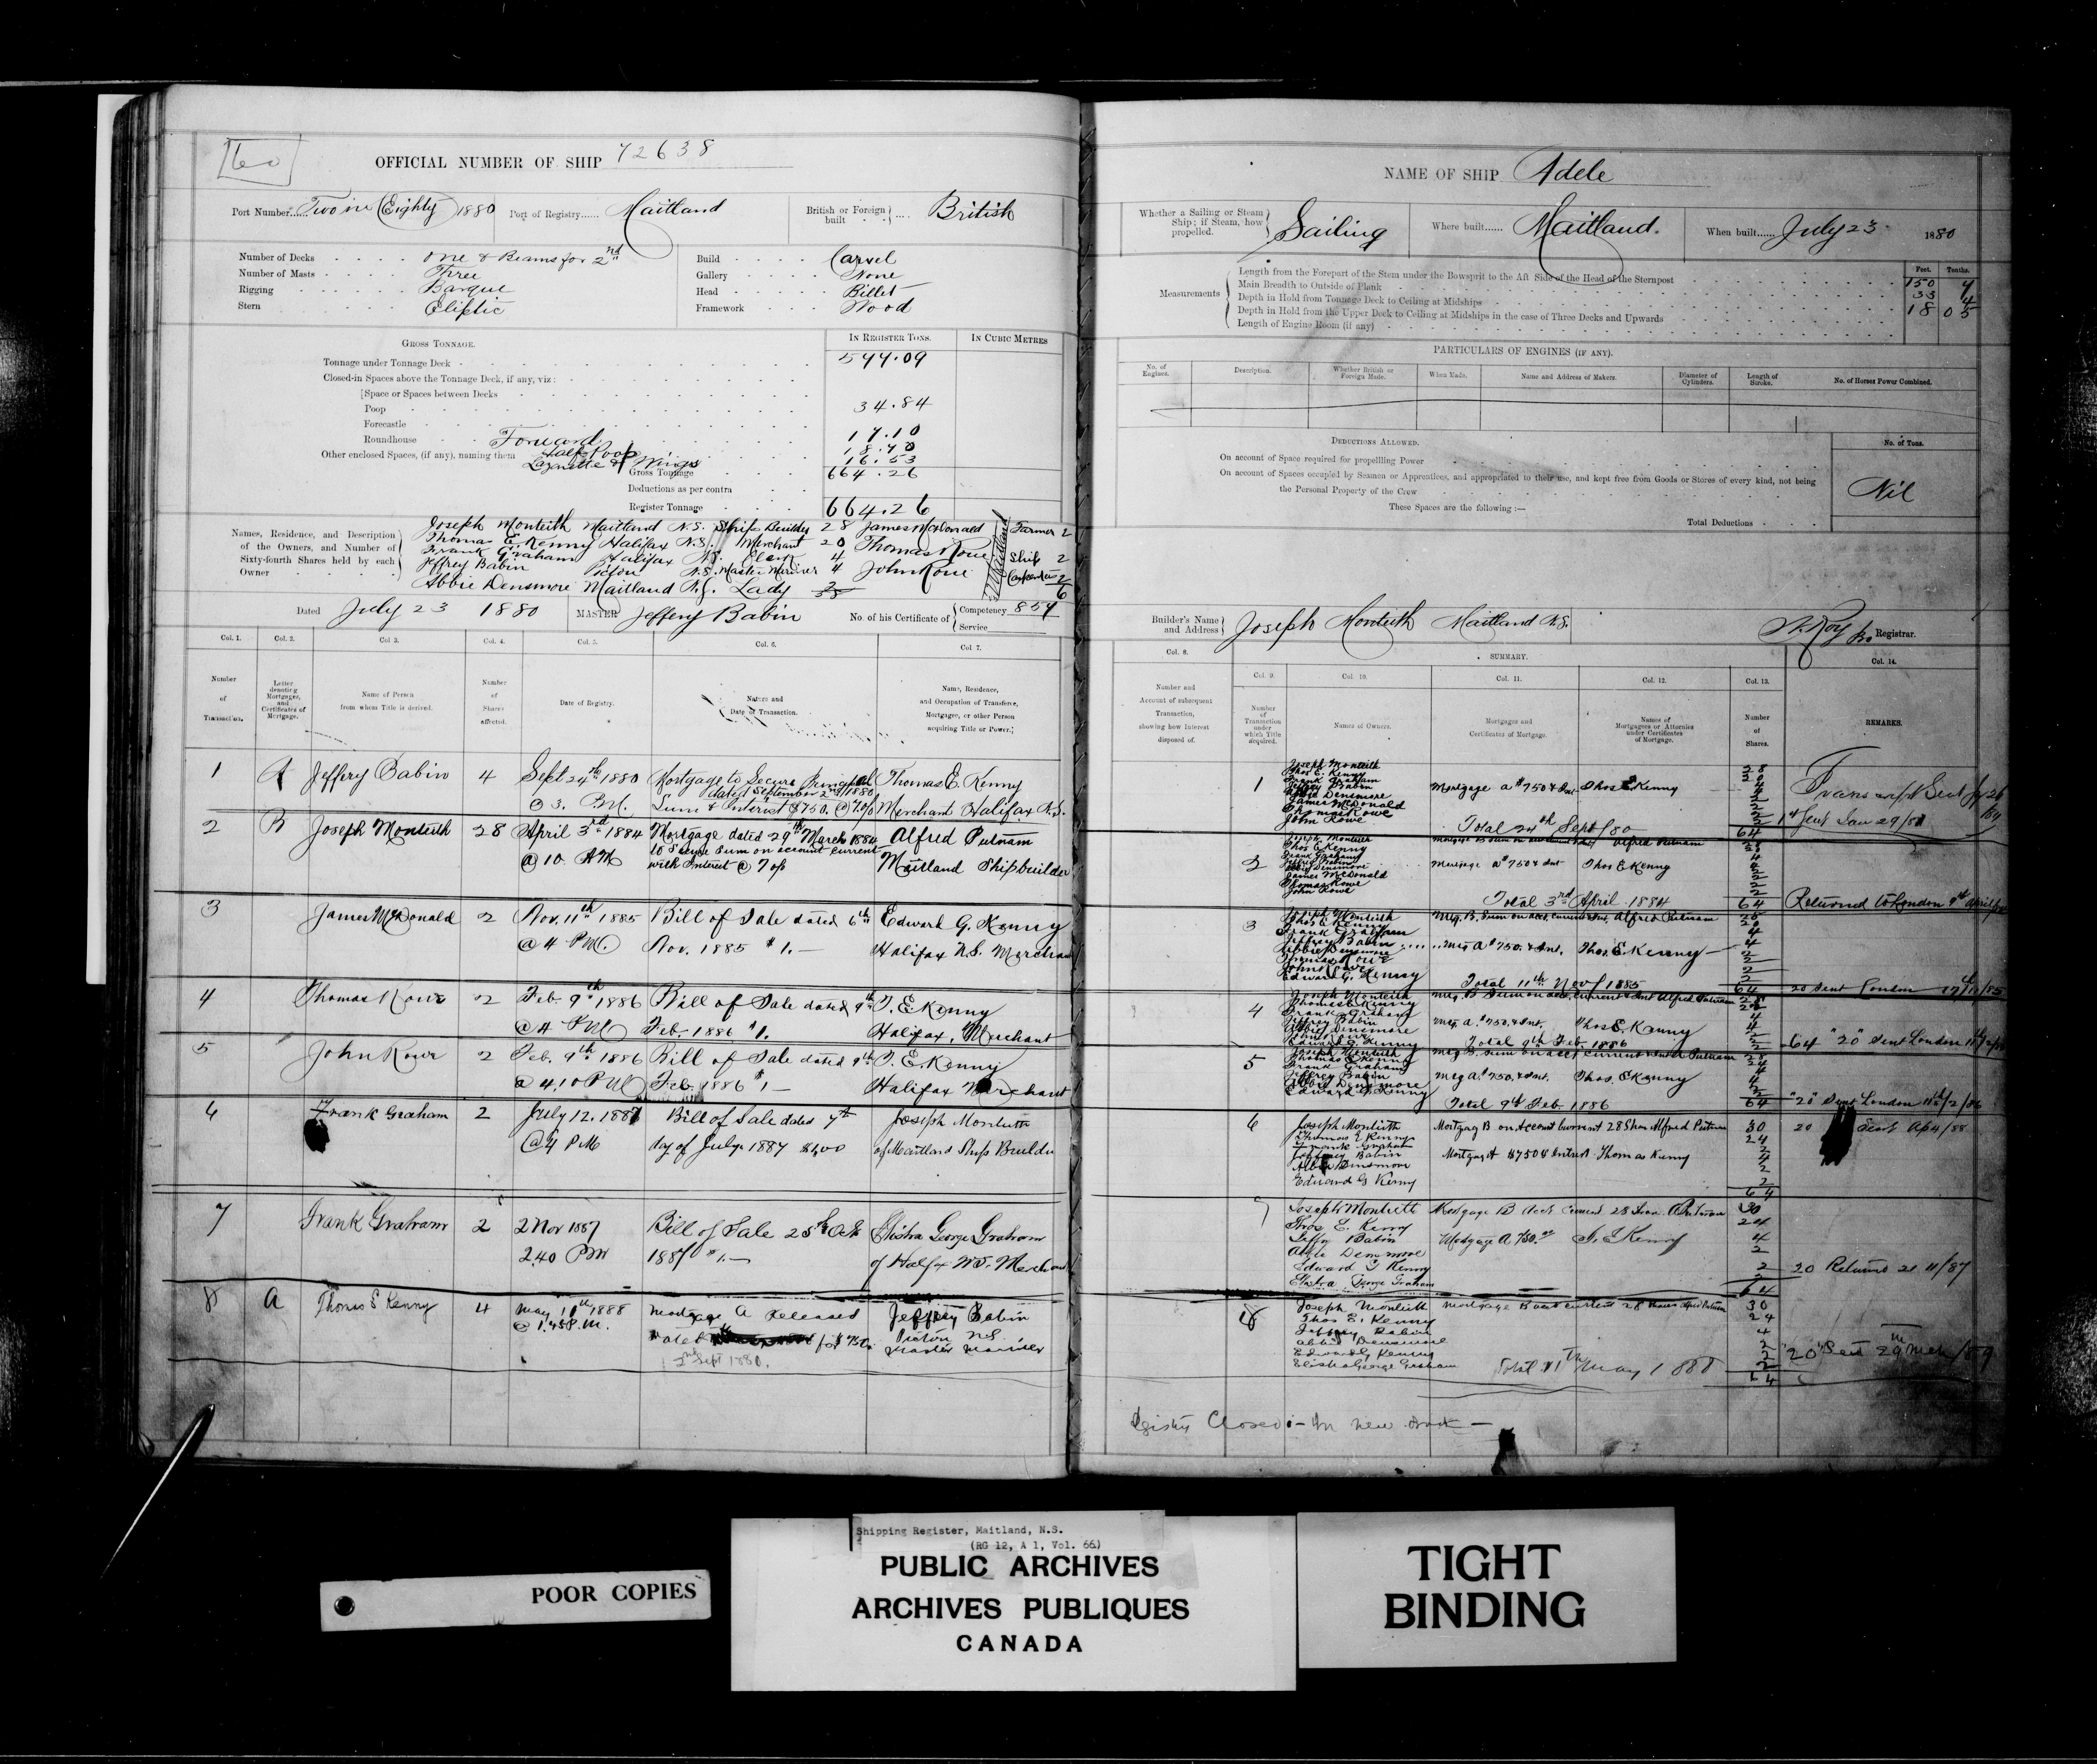 60
OFFICIAL NUMBER OF SHIP 72638
Port Number Two in Eighty 1880 Port of Registry Maitland British or Foreign built British
Number of Decks one & Beams for 2nd
Number of Masts Three
Rigging Barque
Stern Eliptic
Build Carvel
Gallery None
Head Billet
Framework Wood
GROSS TONNAGE. IN REGISTER TONS. IN CUBIC METRES
Tonnage under Tonnage Deck 577.09
Closed-in Spaces above the Tonnage Deck, if any, viz:
Space or Spaces between Decks
Poop 34.84
Forecastle
Roundhouse Forward 17.10
Other enclosed Spaces, (if any), naming them Half Poop 18.70
Lazarette & Wings 16.53
Gross Tonnage 664.26
Deductions as per contra
Register Tonnage 664.26
Names, Residence, and Description of the Owners, and Number of Sixty-fourth Shares held by each Owner
Joseph Monteith Maitland N.S. Ship Builder 28 James McDonald Farmer 2
Thomas E. Kenny Halifax N.S. Merchant 20 Thomas Rowe Ship 2
Frank Graham Halifax N.S. Clerk 4
Jeffrey Babin Pictou N.S. Master Mariner 4 John Rowe Carpenter 2
Abbie Densmore Maitland N.S. Lady 6
Maitland
Dated July 23 1880 MASTER Jeffery Babin No. of his Certificate of Competency 857
Service
Col. 1. Col. 2. Col. 3. Col. 4. Col. 5. Col. 6. Col. 7.
Number of Transaction.
Letter denoting Mortgages, and Certificates of Mortgage.
Name of Person from whom Title is derived.
Number of Shares affected.
Date of Registry.
Nature and Date of Transaction.
Name, Residence, and Occupation of Transferee, Mortgagee, or other Person acquiring Title or Power.
1 A Jeffery Babin 4 Sept 24th 1880 Mortgage to Secure Principal Thomas E. Kenny
dated September 2nd 1880
@ 3. P.M. Sum & Interest $750. @ 7 o/o Merchant Halifax N.S.
2 B Joseph Monteith 28 April 3rd 1884 Mortgage dated 29th March 1884 Alfred Putnam
@ 10 AM to secure sum on account current
with Interest @ 7 o/o Maitland Shipbuilder
3 James McDonald 2 Nov. 11th 1885 Bill of Sale dated 6th Edward G. Kenny
@ 4 PM. Nov. 1885 $1.— Halifax N.S. Merchant
4 Thomas Rowe 2 Feb. 9th 1886 Bill of Sale dated 9th T. E. Kenny
@ 4 PM Feb. 1886 $1. Halifax, Merchant
5 John Rowe 2 Feb. 9th 1886 Bill of Sale dated 9th T. E. Kenny
@ 4.10 PM Feb. 1886 $1— Halifax Merchant
6 Frank Graham 2 July 12. 1887 Bill of Sale dated 7th Joseph Monteith
@ 4 PM day of July 1887 of Maitland Ship Builder
7 Frank Graham 2 2 Nov 1887 Bill of Sale 25th Oct Elisha George Graham
2.40 PM 1887 $1.— of Halifx NS. Merchant
8 A Thomas E Kenny 4 May 11th 1888 Mortgage A released Jeffrey Babin
@ 1.45 P.M. dated for $750. Pictou N.S.
2nd Sept 1880. Master Mariner
NAME OF SHIP Adele
Whether a Sailing or Steam Ship; if Steam, how propelled. Sailing Where built Maitland. When built July 23 1880
Measurements Feet. Tenths.
Length from the Forepart of the Stem under the Bowsprit to the Aft Side of the Head of the Sternpost 150 7
Main Breadth to Outside of Plank 33 4
Depth in Hold from Tonnage Deck to Ceiling at Midships 18 05
Depth in Hold from the Upper Deck to Ceiling at Midships in the case of Three Decks and Upwards
Length of Engine Room (if any)
PARTICULARS OF ENGINES (IF ANY).
No. of Engines. Description. Whether British or Foreign Made. When Made. Name and Address of Makers. Diameter of Cylinders. Length of Stroke. No. of Horses Power Combined.
DEDUCTIONS ALLOWED. No. of Tons.
On account of Space required for propelling Power
On account of Spaces occupied by Seamen or Apprentices, and appropriated to their use, and kept free from Goods or Stores of every kind, not being
the Personal Property of the Crew Nil
These Spaces are the following :—
Total Deductions
Builder's Name and Address Joseph Monteith Maitland N.S. Registrar.
Col. 8. SUMMARY. Col. 14.
Col. 9. Col. 10. Col. 11. Col. 12. Col. 13.
Number and Account of subsequent Transaction, showing how Interest disposed of.
Number of Transaction under which Title acquired.
Names of Owners.
Mortgages and Certificates of Mortgage.
Names of Mortgagees or Attornies under Certificates of Mortgage.
Number of Shares.
REMARKS.
1 Joseph Monteith 28
Thos E. Kenny 20
Frank Graham 4
Jeffrey Babin Mortgage A $750 & Int Thos E Kenny 4
Abbie Densmore 2
James McDonald 2
Thomas Rowe 2
John Rowe 2
Total 24th Sept/80 64
2 Joseph Monteith Alfred Putnam 28
Thos E Kenny 20
Frank Graham 4
Jeffrey Babin Mortgage A $750 & Int Thos E Kenny 4
Abbie Densmore 2
James McDonald 2
Thomas Rowe 2
John Rowe 2
Total 3rd April 1884 64 Returned to London
3 Joseph Monteith Mtg. B. Sum on acct. current & Int. Alfred Putnam 28
Thos E Kenny
Frank Graham 4
Jeffrey Babin Mtg A $750. & Int. Thos. E Kenny 4
Abbie Densmore 2
Thomas Rowe 2
John Rowe 2
Edward G. Kenny 2
Total 11th Nov/1885 64 20 Sent London
4 Joseph Monteith Mtg. B Sum on acct. current & Int Alfred Putnam 28
Thomas E Kenny 22
Frank Graham 4
Jeffrey Babin Mtg A. $750. & Int. Thos E. Kenny 4
Abbie Densmore 2
John Rowe 2
Edward G Kenny 2
Total 9th Feb. 1886 64 "20" Sent London
5 Joseph Monteith Mtg B. Sum on acct current & Int A Putnam 28
Thomas E Kenny 24
Frank Graham 4
Jeffrey Babin Mtg A. $750. & Int. Thos. E Kenny 4
Abbie Densmore 2
Edward G. Kenny 2
Total 9th Feb. 1886 64 "20" Sent London 11th/2/86
6 Joseph Monteith Mortgag B on Account Current 28 Shs Alfred Putnam 30 20 Sent
Thomas E Kenny 24
Frank Graham 2
Jeffrey Babin Mortgag A $750 & Intrest Thomas Kenny 4
Abbie Densmore 2
Edward G Kenny 2
64
7 Joseph Monteith Mortgage B Acct Current 28 Shares A Putnam 30
Thos E. Kenny 24
Jeffry Babin Mortgage A 750.00 T. E Kenny 4
Abbie Densmore 2
Edward G Kenny 2 20 Returned 21 11/87
Elisha George Graham 2
64
8 Joseph Monteith Mortgage B acct current 28 shares Alfred Putnam 30
Thos E. Kenny 24
Jeffrey Babin 4
Abbie Densmore 2
Edward G Kenny 2 "20" Sent
Elisha George Graham Total 11th May 1888 2
64
Closed - In New Book -
POOR COPIES
Shipping Register, Maitland, N.S.
(RG 12, A 1, Vol. 66)
PUBLIC ARCHIVES
ARCHIVES PUBLIQUES
CANADA
TIGHT
BINDING